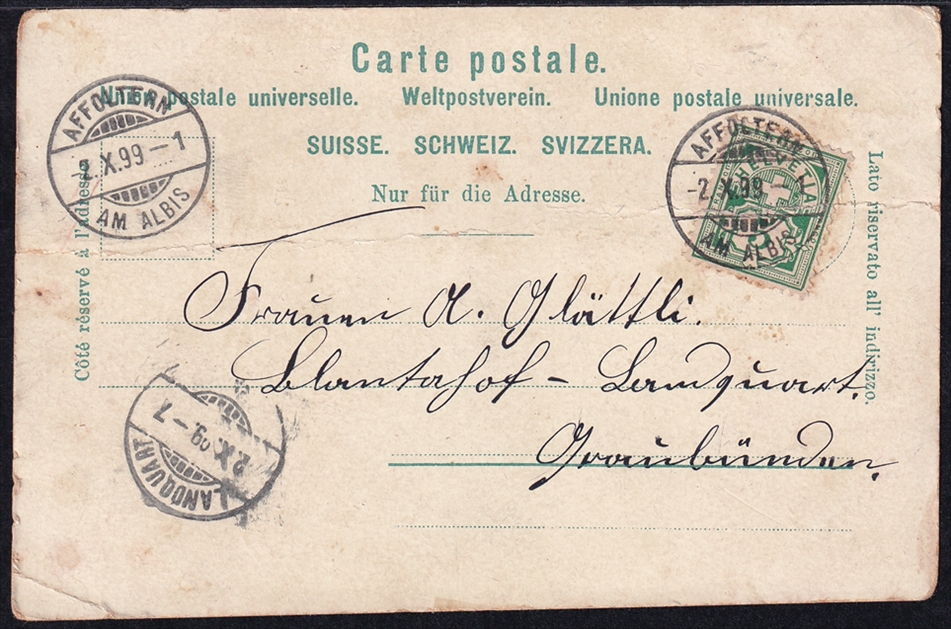 Carte postale.
Union postale universelle. Weltpostverein. Unione postale universale.
SUISSE. SCHWEIZ. SVIZZERA.
Nur für die Adresse.
Côté réservé à l'adresse.
Lato riservato all' indirizzo.
AFFOLTERN
-2.X.99-1
AM ALBIS
AFFOLTERN
-2.X.99-
AM ALBIS
HELVETIA
Frauen A. Glättli.
Plantahof - Landquart.
Graubünden.
LANDQUART
2.X.99-7